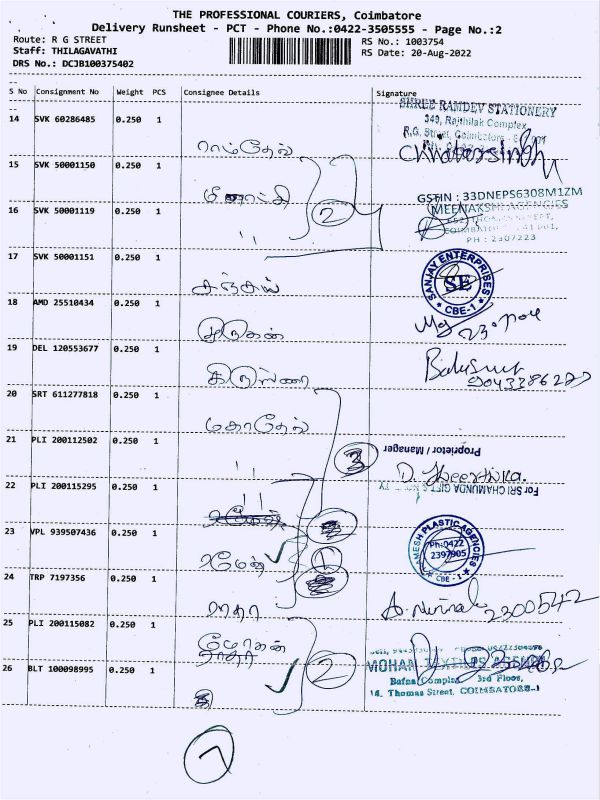 THE PROFESSIONAL COURIERS, Coimbatore
Delivery Runsheet - PCT - Phone No.:0422-3505555 - Page No.:2
Route: R G STREET
RS No.: 1003754
Staff: THILAGAVATHI
RS Date: 20-Aug-2022
DRS No.: DCJB100375402
S No Consignment No Weight PCS Consignee Details Signature
SHREE RAMDEV STATIONERY
14 SVK 60286485 0.250 1
349, Rajthilak Complex
R.G. Street, Coimbatore
ராம்தேவ்
15 SVK 50001150 0.250 1
மீனாட்சி
GSTIN : 33DNEPS6308M1ZM
MEENAKSHI AGENCIES
16 SVK 50001119 0.250 1
2
" PH : 2307223
17 SVK 50001151 0.250 1
சஞ்சய்
SANJAY ENTERPRISES
SE
CBE-1
18 AMD 25510434 0.250 1
முருகன்
19 DEL 120553677 0.250 1
கிருஷ்ணா
20 SRT 611277818 0.250 1
மகாதேவ்
21 PLI 200112502 0.250 1
3
Proprietor / Manager
"
For SRI CHAMUNDA GIFT
22 PLI 200115295 0.250 1
"
23 VPL 939507436 0.250 1
ரமேஷ்
1
PLASTIC AGENCIES
Ph:0422
2397905
CBE - 1
24 TRP 7197356 0.250 1
ராதா
2300542
25 PLI 200115082 0.250 1
மோகன்
26 BLT 100098995 0.250 1
2
MOHAN
Bafna Complex 3rd Floor,
16, Thomas Street, COIMBATORE-1
7